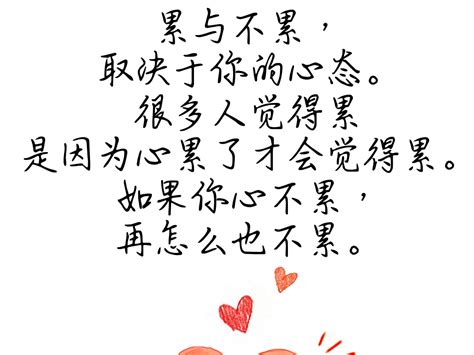 累与不累，
取决于你的心态。
很多人觉得累
是因为心累了才会觉得累。
如果你心不累，
再怎么也不累。